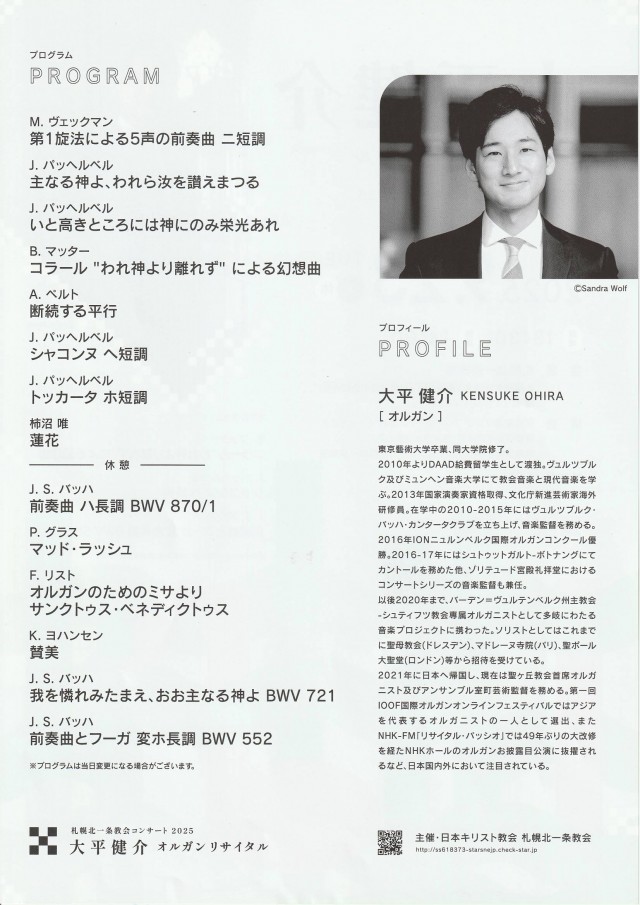 プログラム
PROGRAM
M. ヴェックマン
第1旋法による5声の前奏曲 ニ短調
J. パッヘルベル
主なる神よ、われら汝を讃えまつる
J. パッヘルベル
いと高きところには神にのみ栄光あれ
B. マッター
コラール "われ神より離れず" による幻想曲
A. ペルト
断続する平行
J. パッヘルベル
シャコンヌ ヘ短調
J. パッヘルベル
トッカータ ホ短調
柿沼 唯
蓮花
休憩
J. S. バッハ
前奏曲 ハ長調 BWV 870/1
P. グラス
マッド・ラッシュ
F. リスト
オルガンのためのミサより
サンクトゥス・ベネディクトゥス
K. ヨハンセン
賛美
J. S. バッハ
我を憐れみたまえ、おお主なる神よ BWV 721
J. S. バッハ
前奏曲とフーガ 変ホ長調 BWV 552
※プログラムは当日変更になる場合がございます。
札幌北一条教会コンサート 2025
大平健介 オルガンリサイタル
©Sandra Wolf
プロフィール
PROFILE
大平 健介 KENSUKE OHIRA
[ オルガン ]
東京藝術大学卒業、同大学院修了。
2010年よりDAAD給費留学生として渡独。ヴュルツブル
ク及びミュンヘン音楽大学にて教会音楽と現代音楽を学
ぶ。2013年国家演奏家資格取得、文化庁新進芸術家海外
研修員。在学中の2010-2015年にはヴュルツブルク・
バッハ・カンタータクラブを立ち上げ、音楽監督を務める。
2016年IONニュルンベルク国際オルガンコンクール優
勝。2016-17年にはシュトゥットガルト-ボトナングにて
カントールを務めた他、ゾリテュード宮殿礼拝堂における
コンサートシリーズの音楽監督も兼任。
以後2020年まで、バーデン＝ヴュルテンベルク州主教会
-シュティフツ教会専属オルガニストとして多岐にわたる
音楽プロジェクトに携わった。ソリストとしてはこれまで
に聖母教会(ドレスデン)、マドレーヌ寺院(パリ)、聖ポール
大聖堂(ロンドン)等から招待を受けている。
2021年に日本へ帰国し、現在は聖ヶ丘教会首席オルガ
ニスト及びアンサンブル室町芸術監督を務める。第一回
IOOF国際オルガンオンラインフェスティバルではアジア
を代表するオルガニストの一人として選出、また
NHK-FM「リサイタル・パッシオ」では49年ぶりの大改修
を経たNHKホールのオルガンお披露目公演に抜擢され
るなど、日本国内外において注目されている。
主催・日本キリスト教会 札幌北一条教会
http://ss618373-starsnejp.check-star.jp